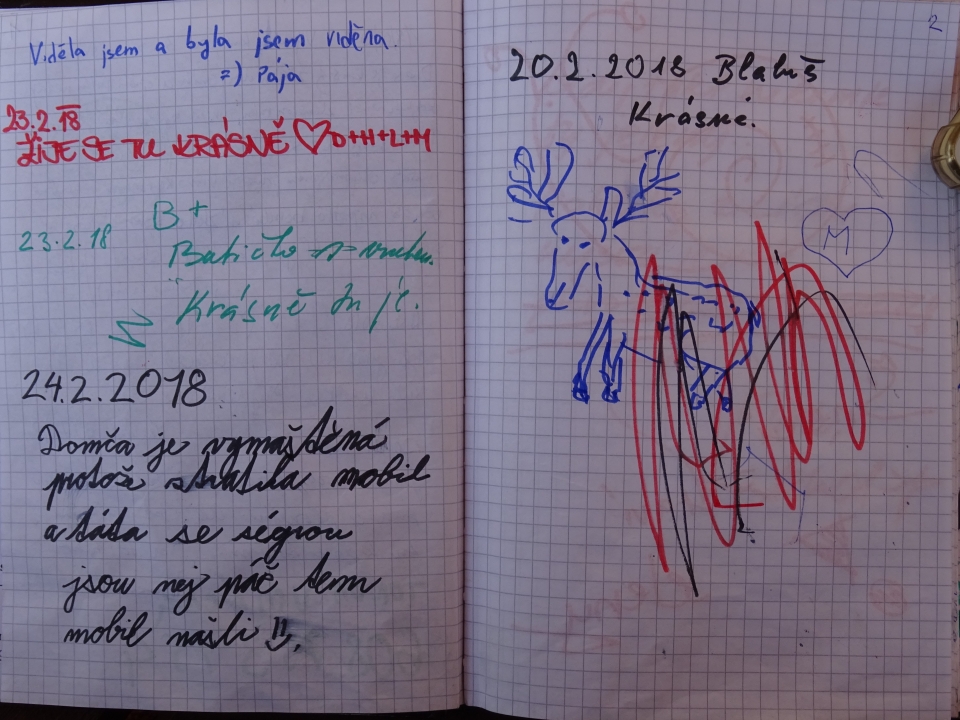 Viděla jsem a byla jsem viděna.
=) Pája
23.2.18
ŽIJE SE TU KRÁSNĚ ♡ D+H+L+M
B+
23.2.18
Krásně tu je.
24.2.2018
Domča je vymaštěná
protože stratila mobil
a táta se ségrou
jsou nej páč tem
mobil našli
2
20.2.2018
Krásné.
M